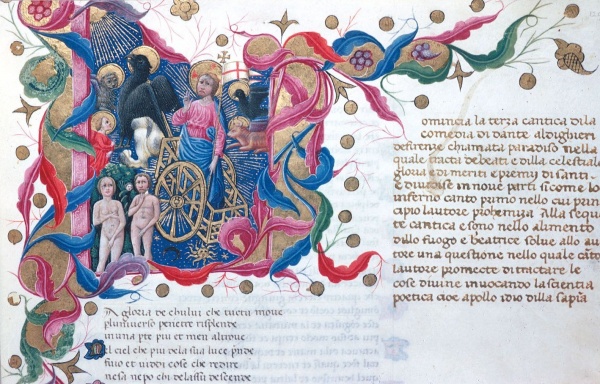 omincia la terza cantica dila
comedia di dante aldighieri
defirenze chiamata paradiso nella
quale tracta debeati e dilla celestial
gloria e di meriti e premij di santi
E diuidese in noue parti sicome lo
inferno canto primo nello cui prin
cipio lautore prohemiza Alla seque
te cantica e sono nello alimento
dllo fuogo e beatrice solue allo au
ore una questione nello quale cāto
lautore promecte di tractare le
cose diuine inuocando la scientia
poetica cioe apollo idio dilla sapia
A gloria de cholui che tucto moue
pluniuerso penetre risplende
inuna pte piu et men altroue
El ciel che piu dela sua luce pnde
fuio et uiddi cose che redire
nesa nepo chi delassu descende